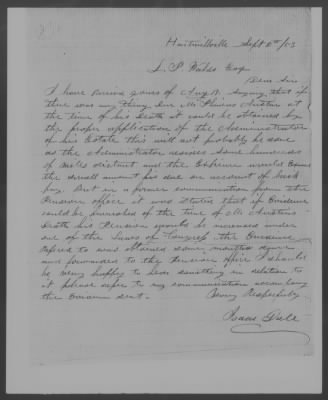 Hartinsville Sept 6th /53
L. P. Waldo Esqr
Dear Sir
I have received yours of Aug 19. Saying that if
there was any thing due Mr. Phineas Austin at
the time of his death it could be obtained by
the proper application of the Administrator
of his Estate this will not probably be done
as the Administrator resides some hundreds
of miles distant and the Expense would Equal
the small amount his due on account of back
pay. But in a former communication from the
Pension office it was stated that if Evidence
could be furnished of the time of Mr. Austins
Death his Pension would be increased under
one of the Laws of Congress the Evidence
refered to was obtained some months since
and forwarded to the Pension office I should
be very happy to hear something in relation to
it please refer to my communication accompanying
the Evidence sent.
Very Respectfully
Isaac